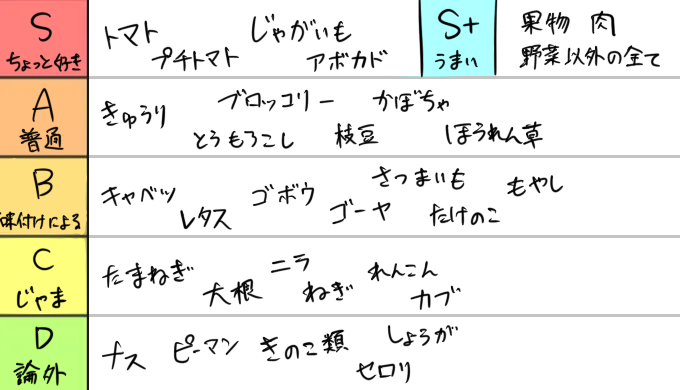 S
ちょっと好き
トマト じゃがいも
プチトマト アボカド
S+
うまい
果物 肉
野菜以外の全て
A
普通
きゅうり ブロッコリー かぼちゃ
とうもろこし 枝豆 ほうれん草
B
味付けによる
キャベツ ゴボウ さつまいも もやし
レタス ゴーヤ たけのこ
C
じゃま
たまねぎ ニラ れんこん
大根 ねぎ カブ
D
論外
ナス ピーマン きのこ類 しょうが
セロリ